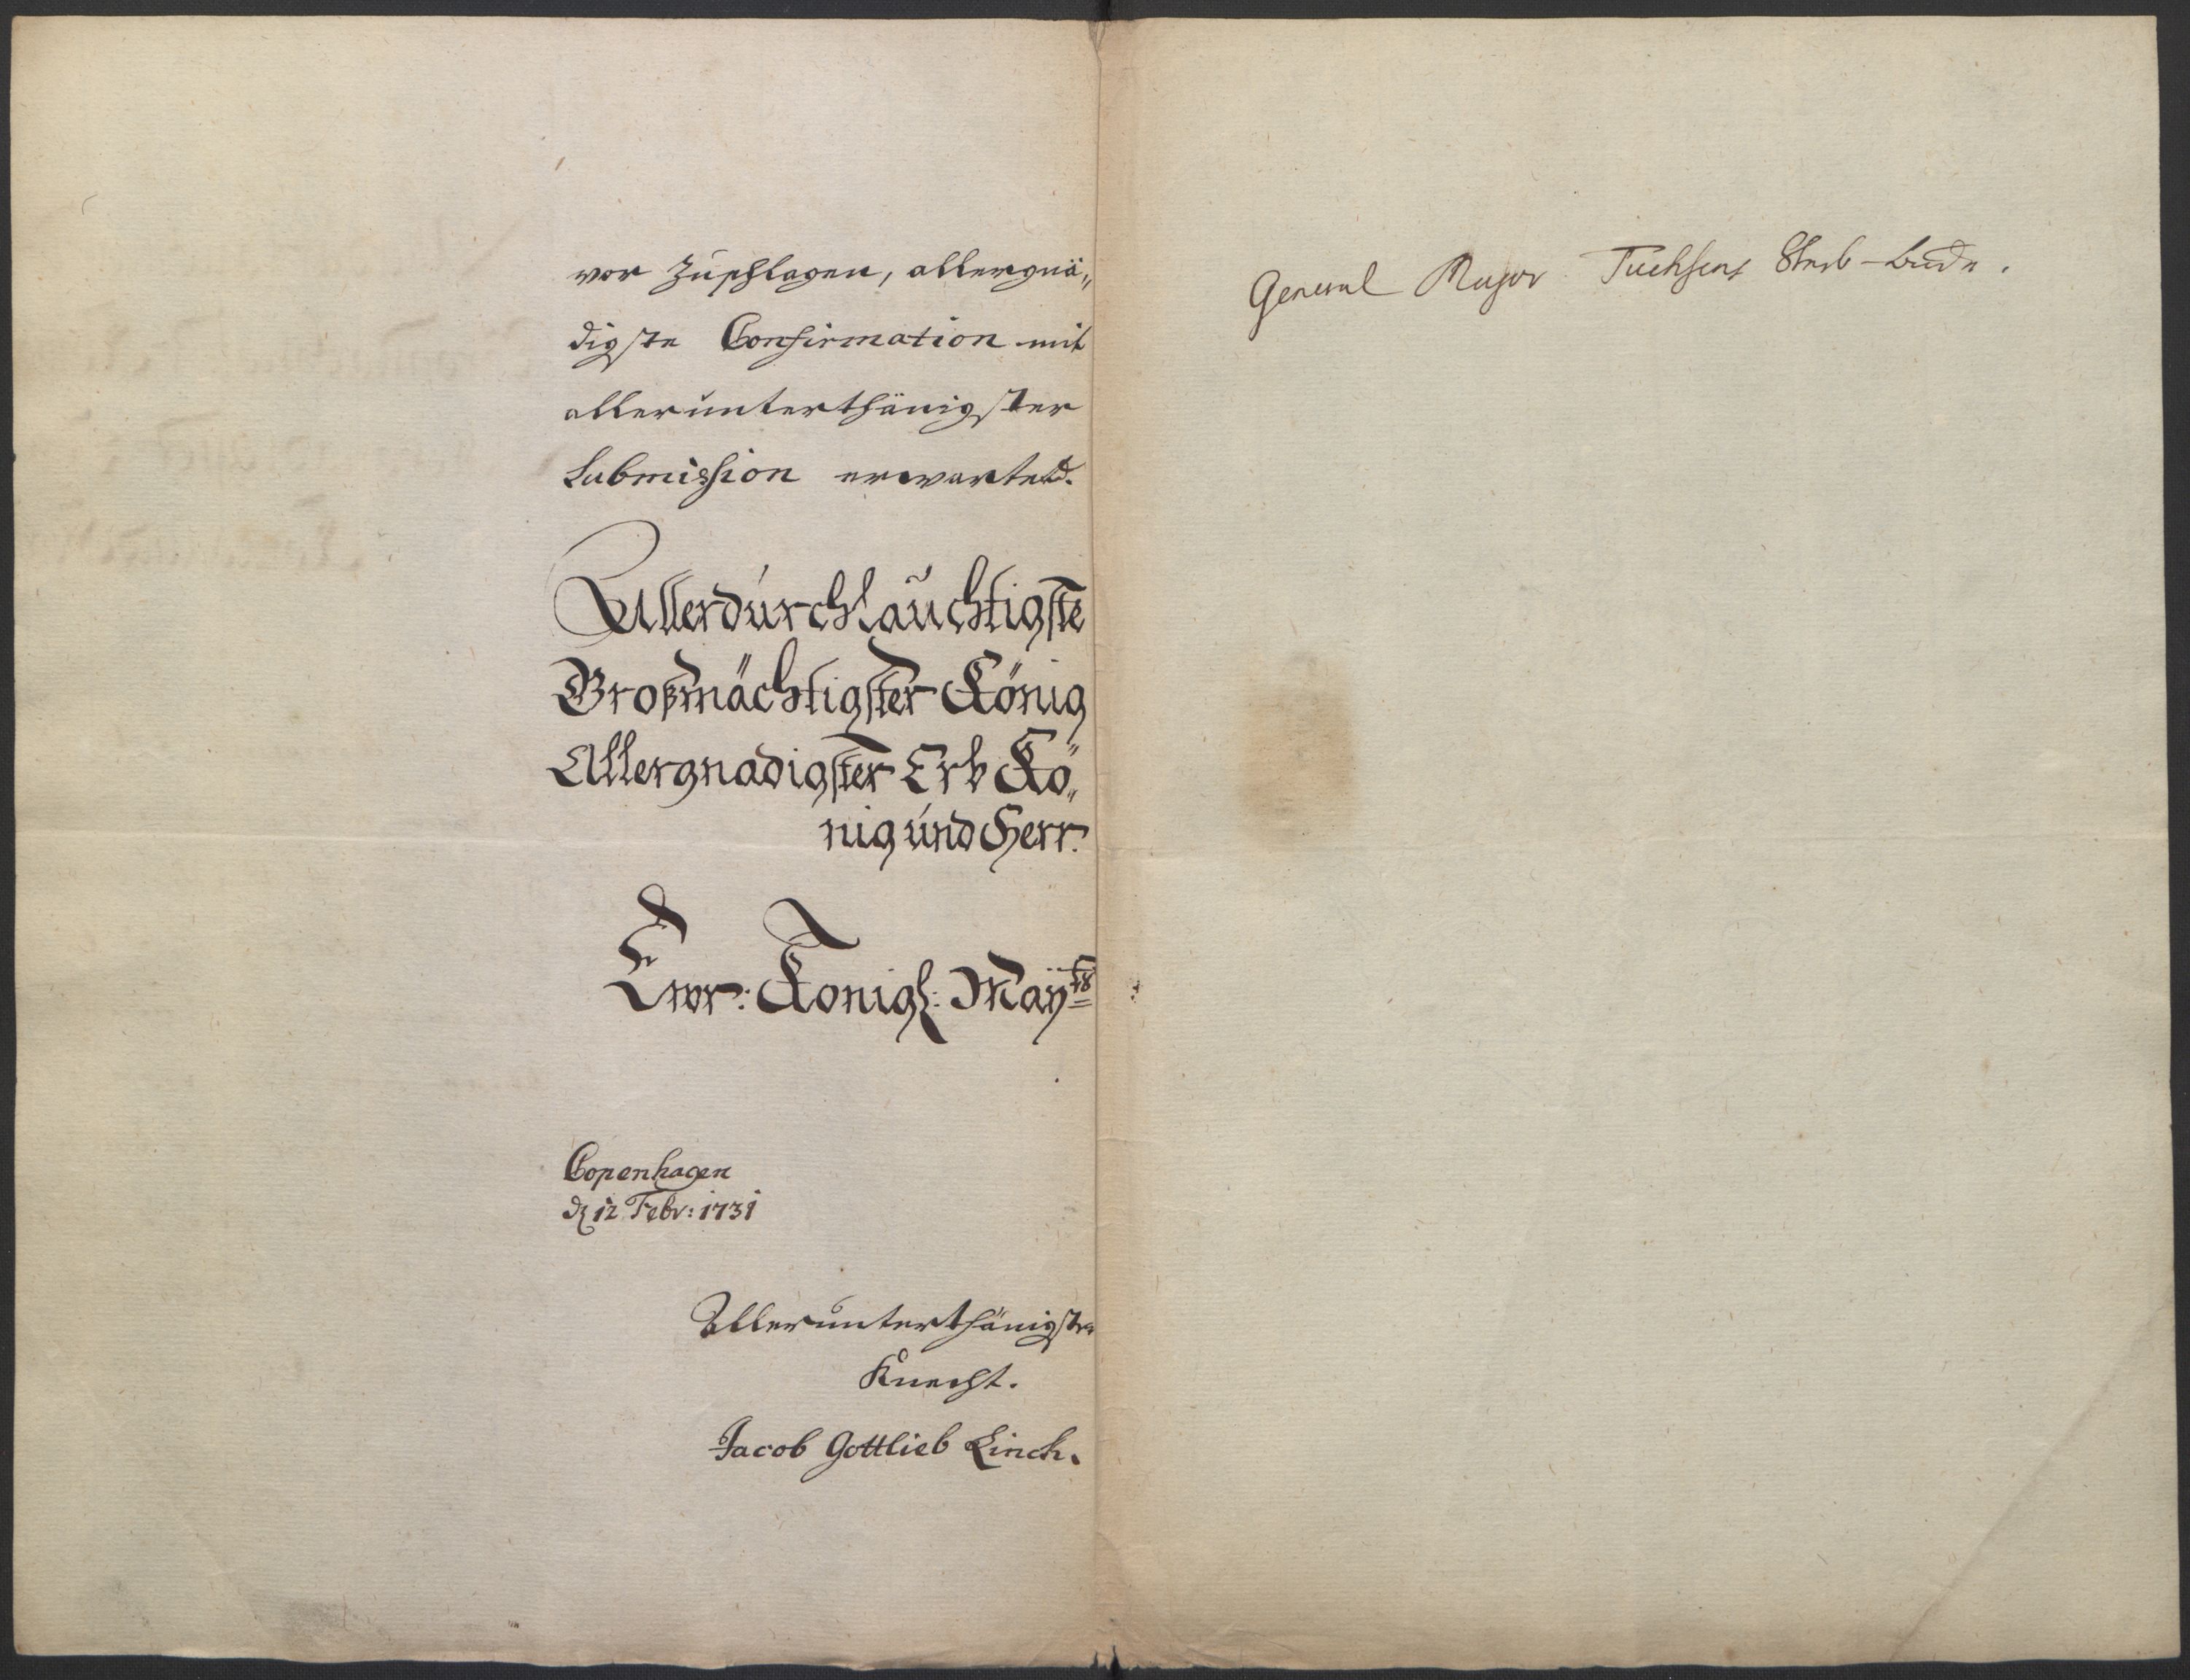 vor zuschlagen, allergnä„
digste Confirmation mit
allerunterthänigster
Submission erwartend.
Allerdurchläuchtigste
Großmächtigster König
Allergnadigster Erb Kö„
nig und Herr.
Ewr: Konigl: May<sup>tt</sup>
Copenhagen
d 12 Febr: 1731
Allerunterthänigster
Knecht.
Jacob Gottlieb Linck.
General Major Tuchsens Sterb-